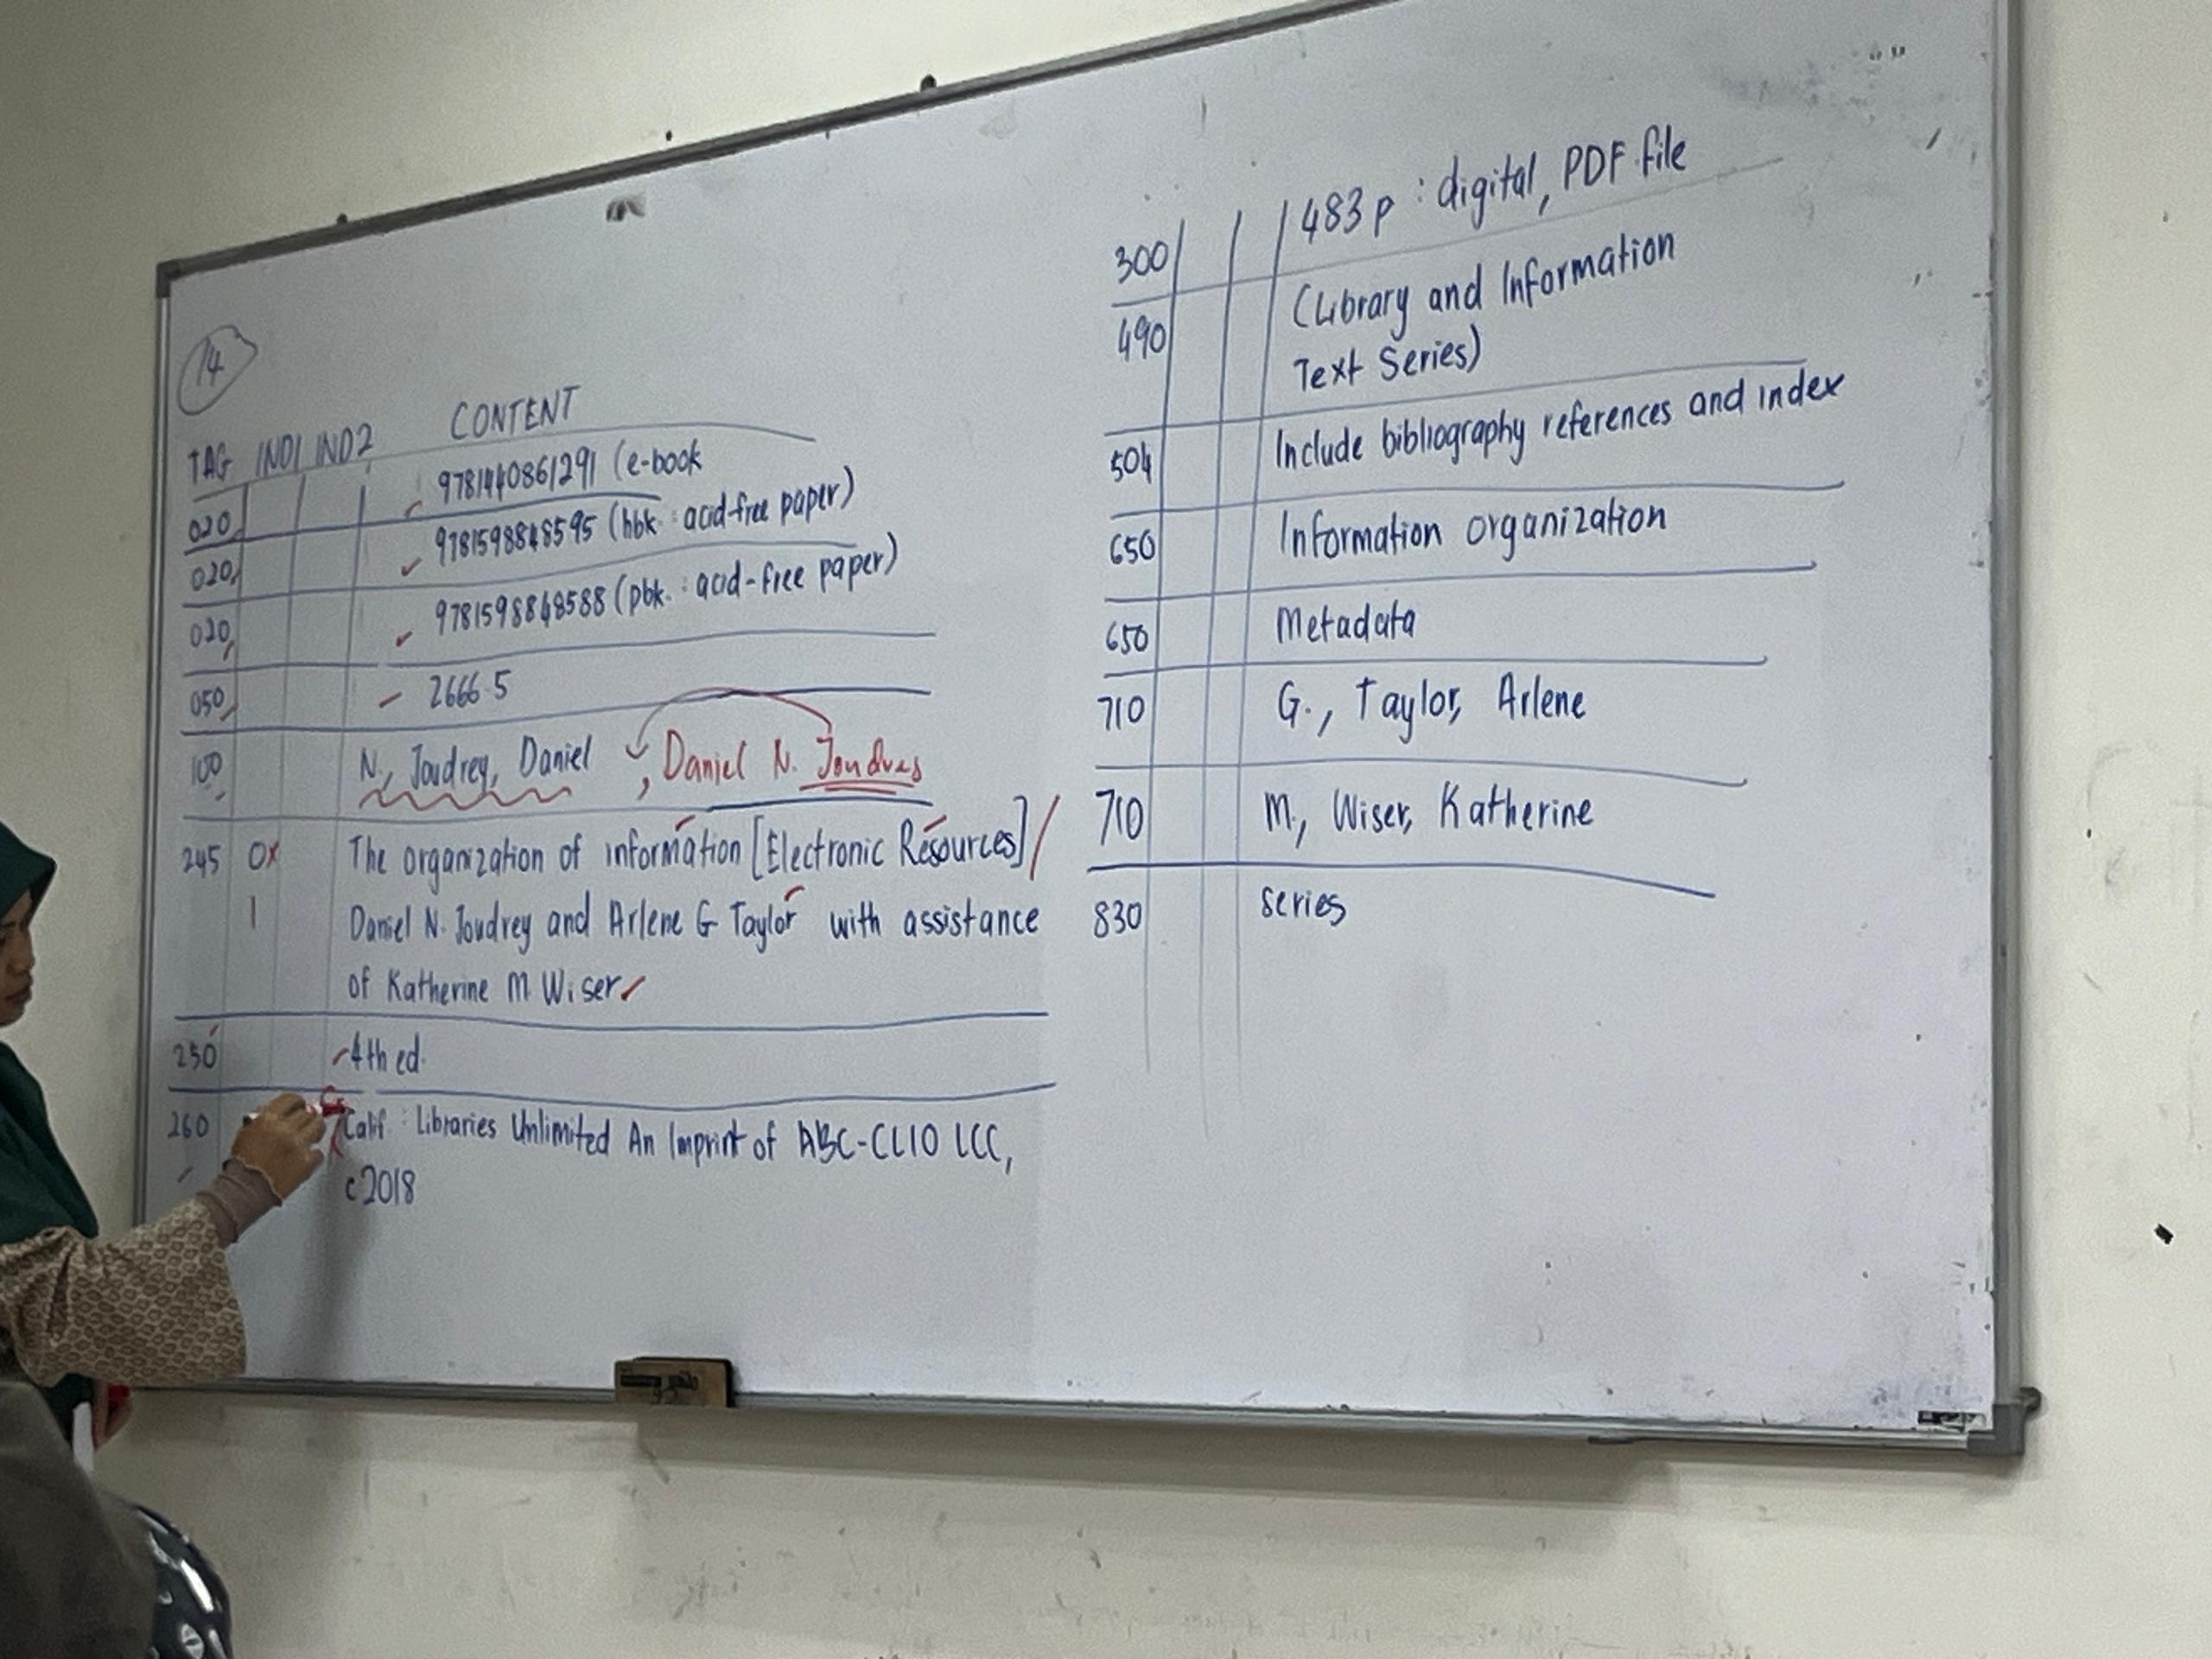 14
TAG IND1 IND2 CONTENT
020 9781440861291 (e-book
020 9781598848595 (hbk : acid-free paper)
020 9781598848588 (pbk. : acid-free paper)
050 2666.5
100 N., Joudrey, Daniel , Daniel N.
245 0x The organization of information [Electronic Resources] /
1 Daniel N. Joudrey and Arlene G Taylor with assistance
of Katherine M. Wiser
250 4th ed.
260 Calif. : Libraries Unlimited An Imprint of ABC-CLIO LCC,
c2018
300 483 p : digital, PDF file
490 (Library and Information
Text Series)
504 Include bibliography references and index
650 Information organization
650 Metadata
710 G., Taylor, Arlene
710 M., Wiser, Katherine
830 series